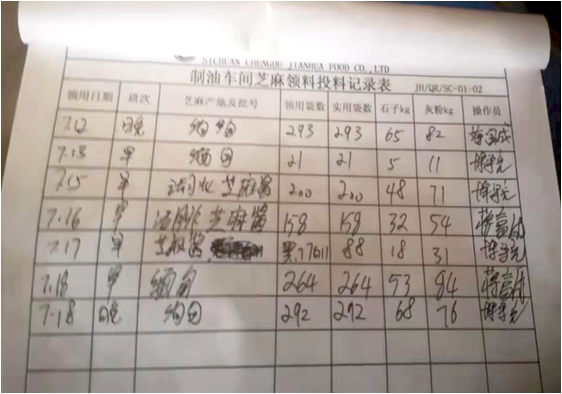 SICHUAN CHENGDU JIANHUA FOOD CO.,LTD
制油车间芝麻领料投料记录表 JH/QR/SC-01-02
领用日期 班次 芝麻产地及批号 领用袋数 实用袋数 石子kg 灰粉kg 操作员
7.12 晚 缅甸 293 293 65 82
7.13 早 缅甸 21 21 5 11
7.15 早 芝麻酱 200 200 48 71
7.16 早 芝麻酱 158 158 32 54
7.17 早 芝麻酱 88 18 31
7.18 早 缅甸 264 264 53 84
7.18 晚 缅甸 292 292 68 76